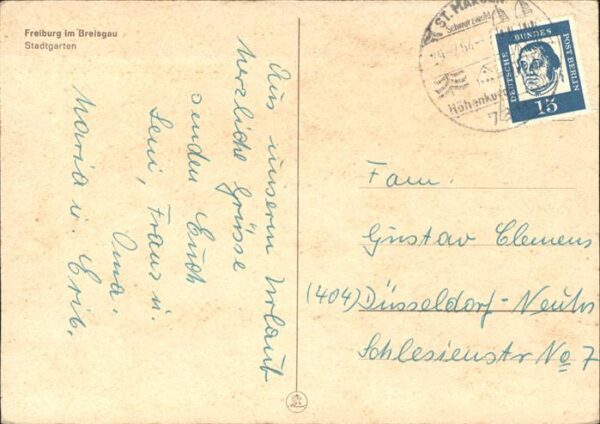 Freiburg im Breisgau
Stadtgarten
Aus unserm Urlaub
herzliche Grüsse
senden Euch
Leni, Franz u.
Oma.
Maria u. Erib.
ST. MÄRGEN
Schwarzwald
Höhenku
DEUTSCHE BUNDESPOST BERLIN
15
Fam.
Gustav Clemens
(404) Düsseldorf-Neuhs
Schlesienstr No 7